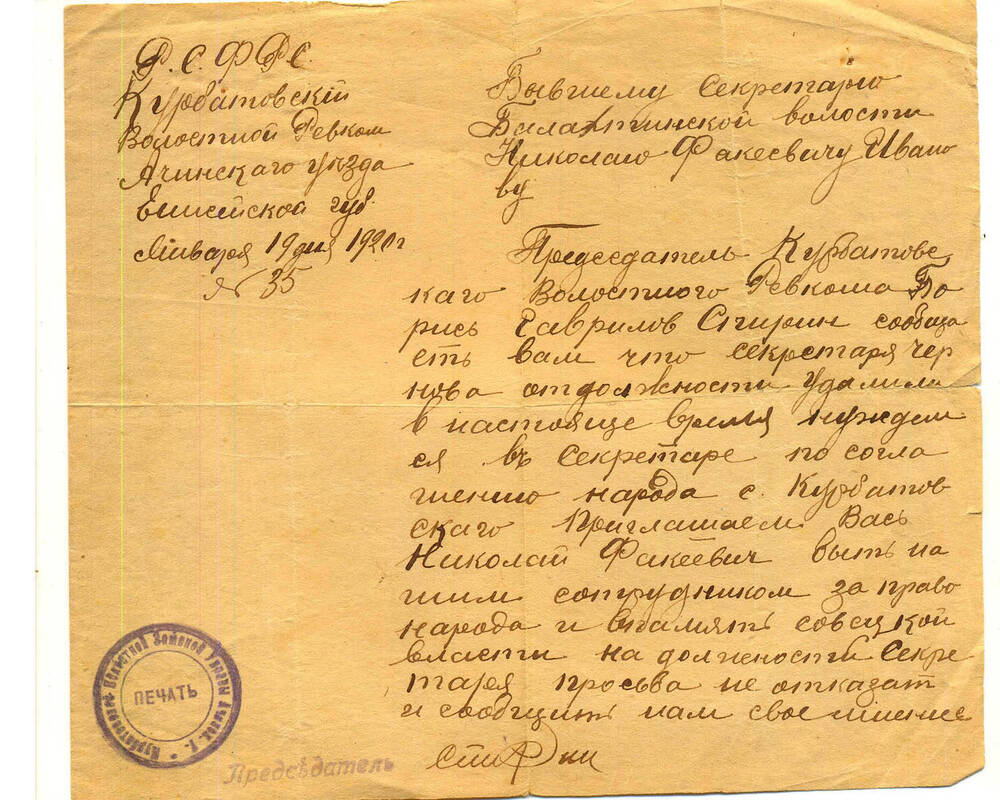 Р.С.Ф.Р.С.
Курбатовскій
Волостной Ревком
Ачинскаго уѣзда
Енисейской губ.
Января 19 дня 1920 г
№ 35
Бывшему Секретарю
Балахтинской волости
Николаю Факеевичу Ивано
ву
Председатель Курбатовс
каго Волостного Ревкома Бо
рись Гаврилов сообща
еть вам что секретаря чер
нова от должности удалили
в настояще время нуждем
ся въ Секретаре по согла
шению народа с. Курбатов
скаго Приглашаем Вась
Николай Факеевич выть на
шим сотрудником за право
народа и совецкой
власти на должности Секре
таря просьва не отказат
и сообщить нам свое мнение
ПЕЧАТЬ
Курбатовской Волостной Земской Управы Ачинск. у.
Предсѣдатель